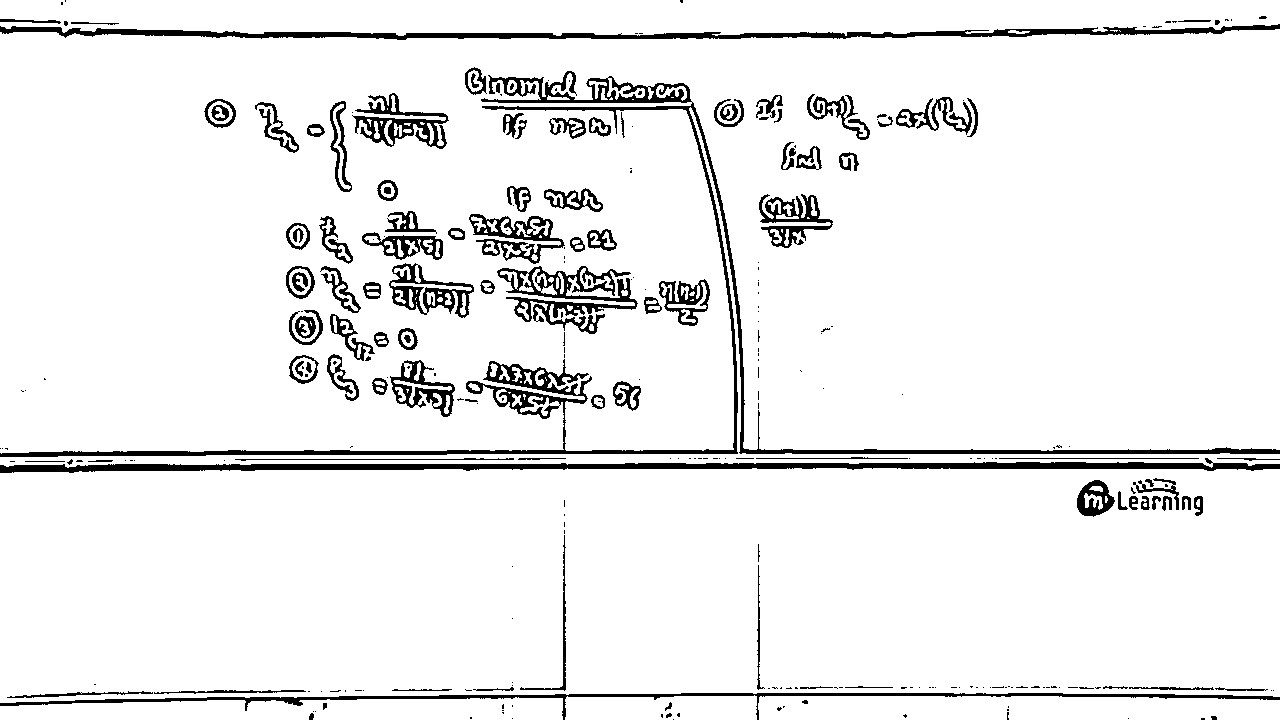 Binomial Theorem
② ⁿCᵣ = { n! / r!(n-r)! if n ≥ r
0 if n < r
① ⁷C₂ = 7! / 2!×5! = 7×6×5! / 2×5! = 21
② ⁿC₂ = n! / 2!(n-2)! = n×(n-1)×(n-2)! / 2×(n-2)! = n(n-1) / 2
③ ¹²C₁₇ = 0
④ ⁸C₃ = 8! / 3!×5! = 8×7×6×5! / 6×5! = 56
⑤ If ⁽ⁿ⁺¹⁾C₃ = 2×(ⁿC₂)
find n
(n+1)! / 3!×
m Learning